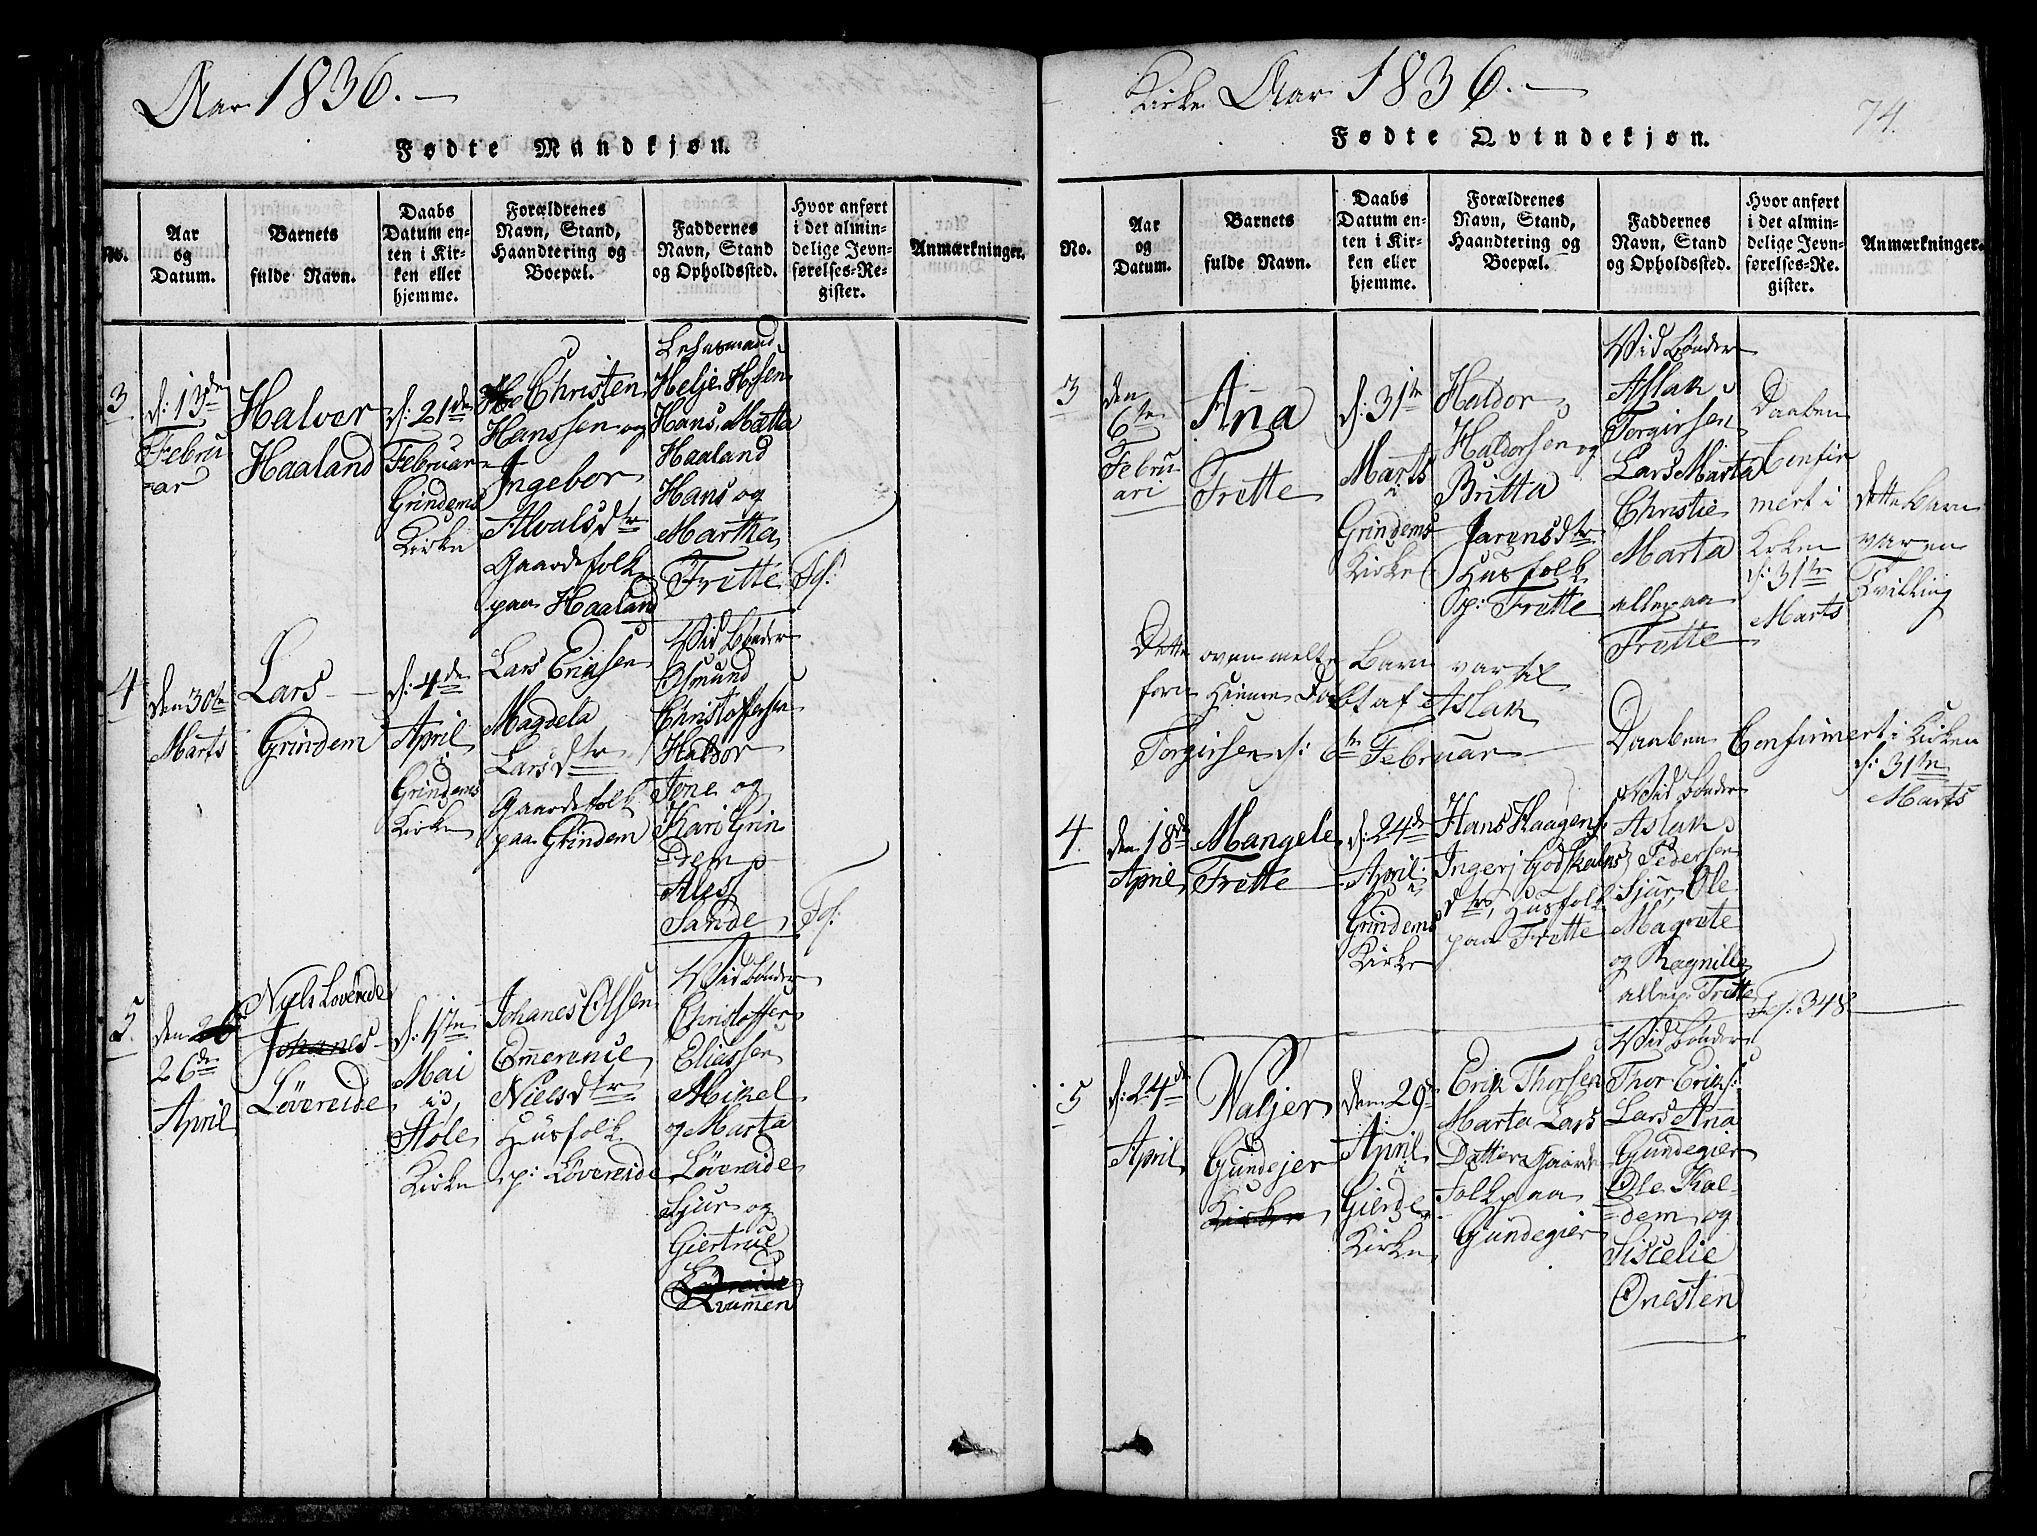 Aar 1836.
Fødte Mandkjøn.
No.
Aar
og
Datum.
Barnets
fulde Navn.
Daabs
Datum en-
ten i Kir-
ken eller
hjemme.
Forældrenes
Navn, Stand,
Haandtering og
Boepæl.
Faddernes
Navn, Stand
og Opholdssted.
Hvor anført
i det almin-
delige Jevn-
førelses-Re-
gister.
Anmærkninger.
3.
d: 13de
Febru
ar
Halver
Haaland
d: 21de
Februar
Grindems
Kirke
Christen
Hanssen og
Ingebor
Alvalsdtr
Gaardsfolk
paa Haaland
Lehnsmand
Helje
Hans, Matta
Haaland
Hans og
Martha
Frette
4
den 30te
Marts
Lars
Grindem
d: 4de
April
i
Grindems
Kirke
Lars Eriksen
Magdela
Larsdtr
Gaardsfolk
paa Grindem
Vid. Bønder
Osmund
Christoffersen
Haldor
Jone og
Kari Grin
dem
Ales
Sande
5.
den 26
26de
April
Niels Lovereide
Johanes
Løvereide
d: 1ste
Mai
i
Støle
Kirke
Johanes Olsen
Emerence
Nielsdtr
Husfolk
p: Løvereide
Vid. Bønder
Christoffer
Eliassen
Mikel
og Marta
Løvereide
Sjur og
Giertrue
Løvreide
Qvamen
Kirke Aar 1836.
74.
Fødte Qvindekjøn.
No.
Aar
og
Datum.
Barnets
fulde Navn.
Daabs
Datum en-
ten i Kir-
ken eller
hjemme.
Forældrenes
Navn, Stand,
Haandtering og
Boepæl.
Faddernes
Navn, Stand
og Opholdssted.
Hvor anført
i det almin-
delige Jevn-
førelses-Re-
gister.
Anmærkninger.
3
den
6te
Febru
ari
Ana
Frette
d: 31te
Marts
i
Grindems
Kirke
Haldor
Haldorsen og
Britta
Jarensdtr
Husfolk
p: Frette
Vid. Bønder
Aslak
Torgirsen
Lars Marta
Christie
Marta
alle paa
Frette
Daaben
Confir
mert i
Kirken
d: 31te
Marts
Dette Barn
var en
Tvilling
Dette ovenmelte Barn var til
forn Hieme Døbt af Aslak
Torgirsen d: 6te Februar
Daaben Confirmert i Kirken
d: 31te
Marts
4.
den 18de
April
Mangele
Frette
d: 24de
April
i
Grindems
Kirke
Hans Haagens.
Ingerj Godskalns
dtr, Husfolk
paa Frette
Vid. Bønder
Aslak
Pedersen
Sjur, Ole
Magrete
og Ragnille
alle p: Frette
348
5
d: 24de
April
Valjer
Gundejer
Kirke
den 29de
April
i
Gierde
Kirke
Erik Thorsen
Marta Lars
Datter Gaards
Folk paa
Gundegier
Vid. Bønder
Thor Eriks:
Lars Ana
Gundegier
Ole Kal-
dem og
Siscelie
Ønesten